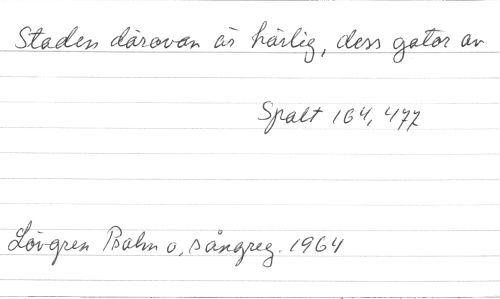 Staden därovan är härlig, dess gator av
Spalt 164, 477
Lövgren Psalm o, sångreg. 1964